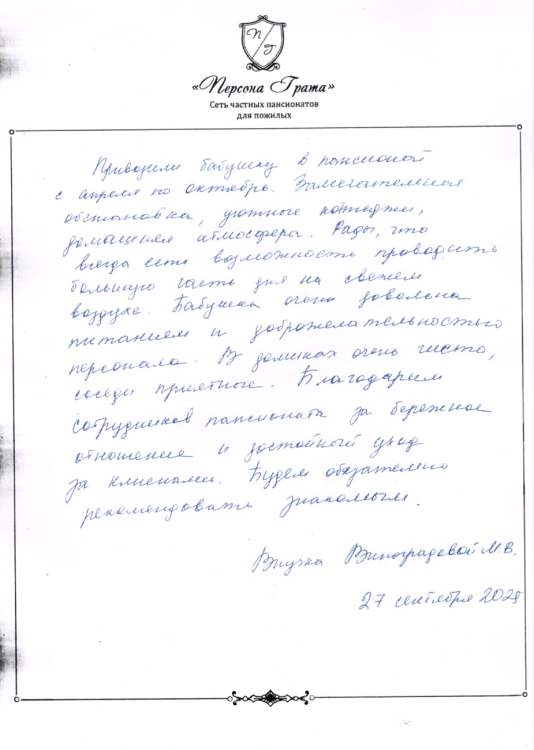 П Г
«Персона Грата»
Сеть частных пансионатов
для пожилых
Привозили бабушку в пансионат
с апреля по октябрь. Замечательная
обстановка, уютные коттеджи,
домашняя атмосфера. Рады, что
всегда есть возможность проводить
большую часть дня на свежем
воздухе. Бабушка очень довольна
питанием и доброжелательностью
персонала. В домиках очень чисто,
соседи приятные. Благодарим
сотрудников пансионата за бережное
отношение и достойный уход
за клиентами. Будем обязательно
рекомендовать знакомым.
Внучка Виноградовой М.В.
27 сентября 2025